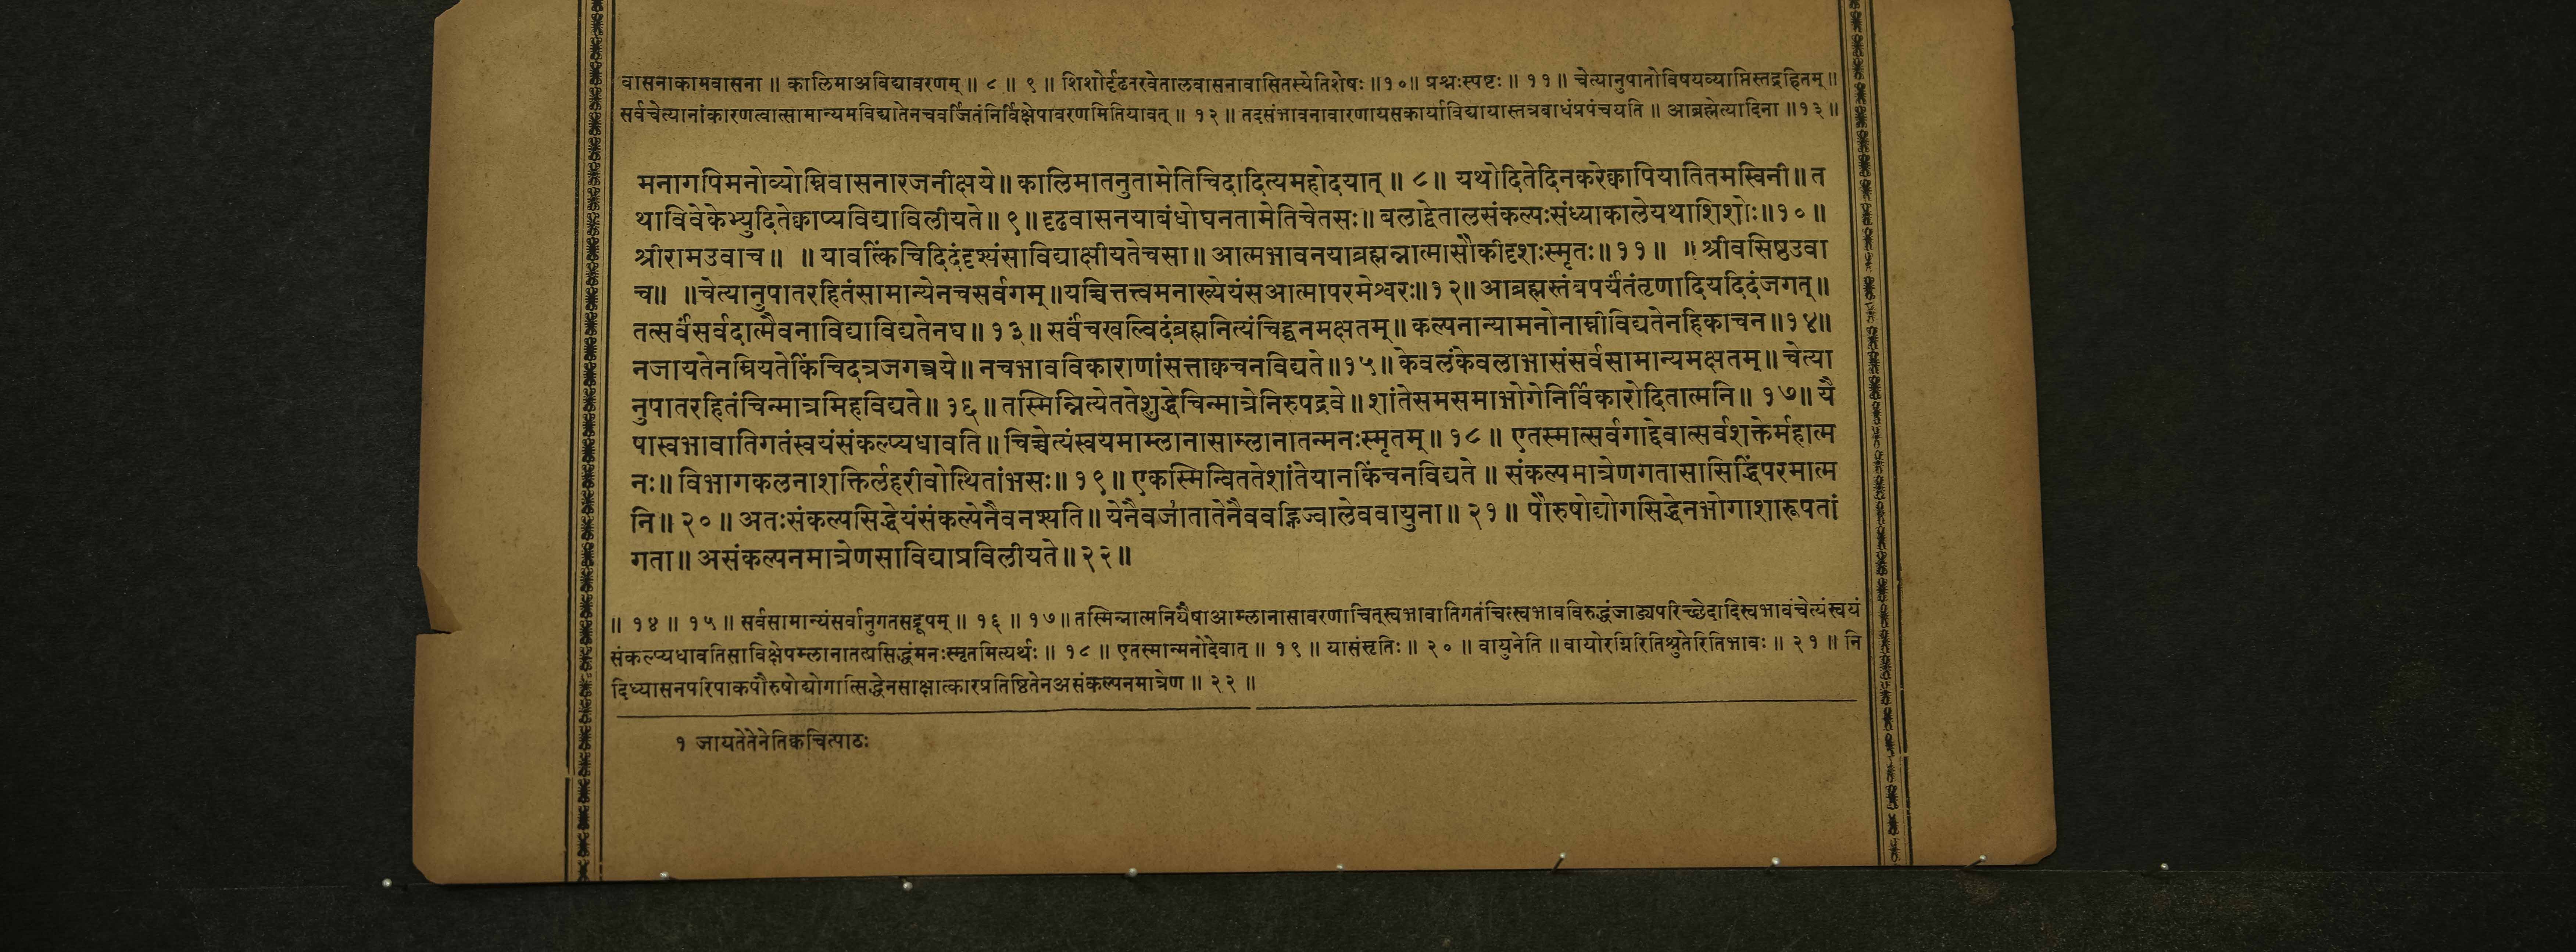 वासनाकामवासना ॥ कालिमाअविद्यावरणम् ॥ ८ ॥ ९ ॥ शिशोर्दृढतरवेतालवासनावासितस्येतिशेषः ॥१०॥ प्रश्नःस्पष्टः ॥ ११ ॥ चेत्यानुपातोविषयव्याप्तिस्तद्रहितम् ॥
सर्वचेत्यानांकारणत्वात्सामान्यमविद्यातेनचवर्जितंनिर्विक्षेपावरणमितियावत् ॥ १२ ॥ तदसंभावनावारणायसकार्याविद्यायास्तत्रबाधंप्रपंचयति ॥ आब्रह्मेत्यादिना ॥१३॥
मनागपिमनोव्योम्निवासनारजनीक्षये॥ कालिमातनुतामेतिचिदादित्यमहोदयात् ॥ ८॥ यथोदितेदिनकरेक्वापियातितमस्विनी॥ त
थाविवेकेभ्युदितेक्वाप्यविद्याविलीयते॥ ९॥ दृढवासनयाबंधोघनतामेतिचेतसः॥ बलाद्वेतालसंकल्पःसंध्याकालेयथाशिशोः॥१०॥
श्रीरामउवाच॥ ॥ यावत्किंचिदिदंदृश्यंसाविद्याक्षीयतेचसा॥ आत्मभावनयाब्रह्मन्नात्मासौकीदृशःस्मृतः॥ ११॥ ॥ श्रीवसिष्ठउवा
च॥ ॥चेत्यानुपातरहितंसामान्येनचसर्वगम्॥यच्चित्तत्त्वमनाख्येयंसआत्मापरमेश्वरः॥१२॥ आब्रह्मस्तंबपर्यंतंतृणादियदिदंजगत्॥
तत्सर्वंसर्वदात्मैवनाविद्याविद्यतेनघ॥ १३॥ सर्वंचखल्विदंब्रह्मनित्यंचिद्घनमक्षतम्॥ कल्पनान्यामनोनाम्नीविद्यतेनहिकाचन॥१४॥
नजायतेनम्रियतेकिंचिदत्रजगत्त्रये॥ नचभावविकाराणांसत्ताक्वचनविद्यते॥१५॥ केवलंकेवलाभासंसर्वसामान्यमक्षतम्॥ चेत्या
नुपातरहितंचिन्मात्रमिहविद्यते॥ १६॥ तस्मिन्नित्येततेशुद्धेचिन्मात्रेनिरुपद्रवे॥ शांतेसमसमाभोगेनिर्विकारोदितात्मनि॥ १७॥ यै
षास्वभावातिगतंस्वयंसंकल्प्यधावति॥ चिच्चेत्यंस्वयमाम्लानासाम्लानातन्मनःस्मृतम्॥ १८॥ एतस्मात्सर्वगाद्देवात्सर्वशक्तेर्महात्म
नः॥ विभागकलनाशक्तिर्लहरीवोत्थितांभसः॥ १९॥ एकस्मिन्विततेशांतेयानकिंचनविद्यते ॥ संकल्पमात्रेणगतासासिद्धिंपरमात्म
नि॥ २०॥ अतःसंकल्पसिद्धेयंसंकल्पेनैवनश्यति॥ येनैवर्जातातेनैववह्निज्वालेववायुना॥ २१॥ पौरुषोद्योगसिद्धेनभोगाशारूपतां
गता॥ असंकल्पनमात्रेणसाविद्याप्रविलीयते॥ २२॥
॥ १४ ॥ १५ ॥ सर्वसामान्यंसर्वानुगतसद्रूपम् ॥ १६ ॥ १७॥ तस्मिन्नात्मनियैषाआम्लानासावरणाचित्स्वभावातिगतंचित्स्वभावविरुद्धंजाड्यपरिच्छेदादिस्वभावंचेत्यंस्वयं
संकल्प्यधावतिसाविक्षेपम्लानातत्प्रसिद्धंमनःस्मृतमित्यर्थः ॥ १८ ॥ एतस्मान्मनोदेवात् ॥ १९ ॥ यासंसृतिः ॥ २० ॥ वायुनेति ॥ वायोरग्निरितिश्रुतेरितिभावः ॥ २१ ॥ नि
दिध्यासनपरिपाकपौरुषोद्योगात्सिद्धेनसाक्षात्कारप्रतिष्ठितेनअसंकल्पनमात्रेण ॥ २२ ॥
१ जायतेतेनेतिक्वचित्पाठः